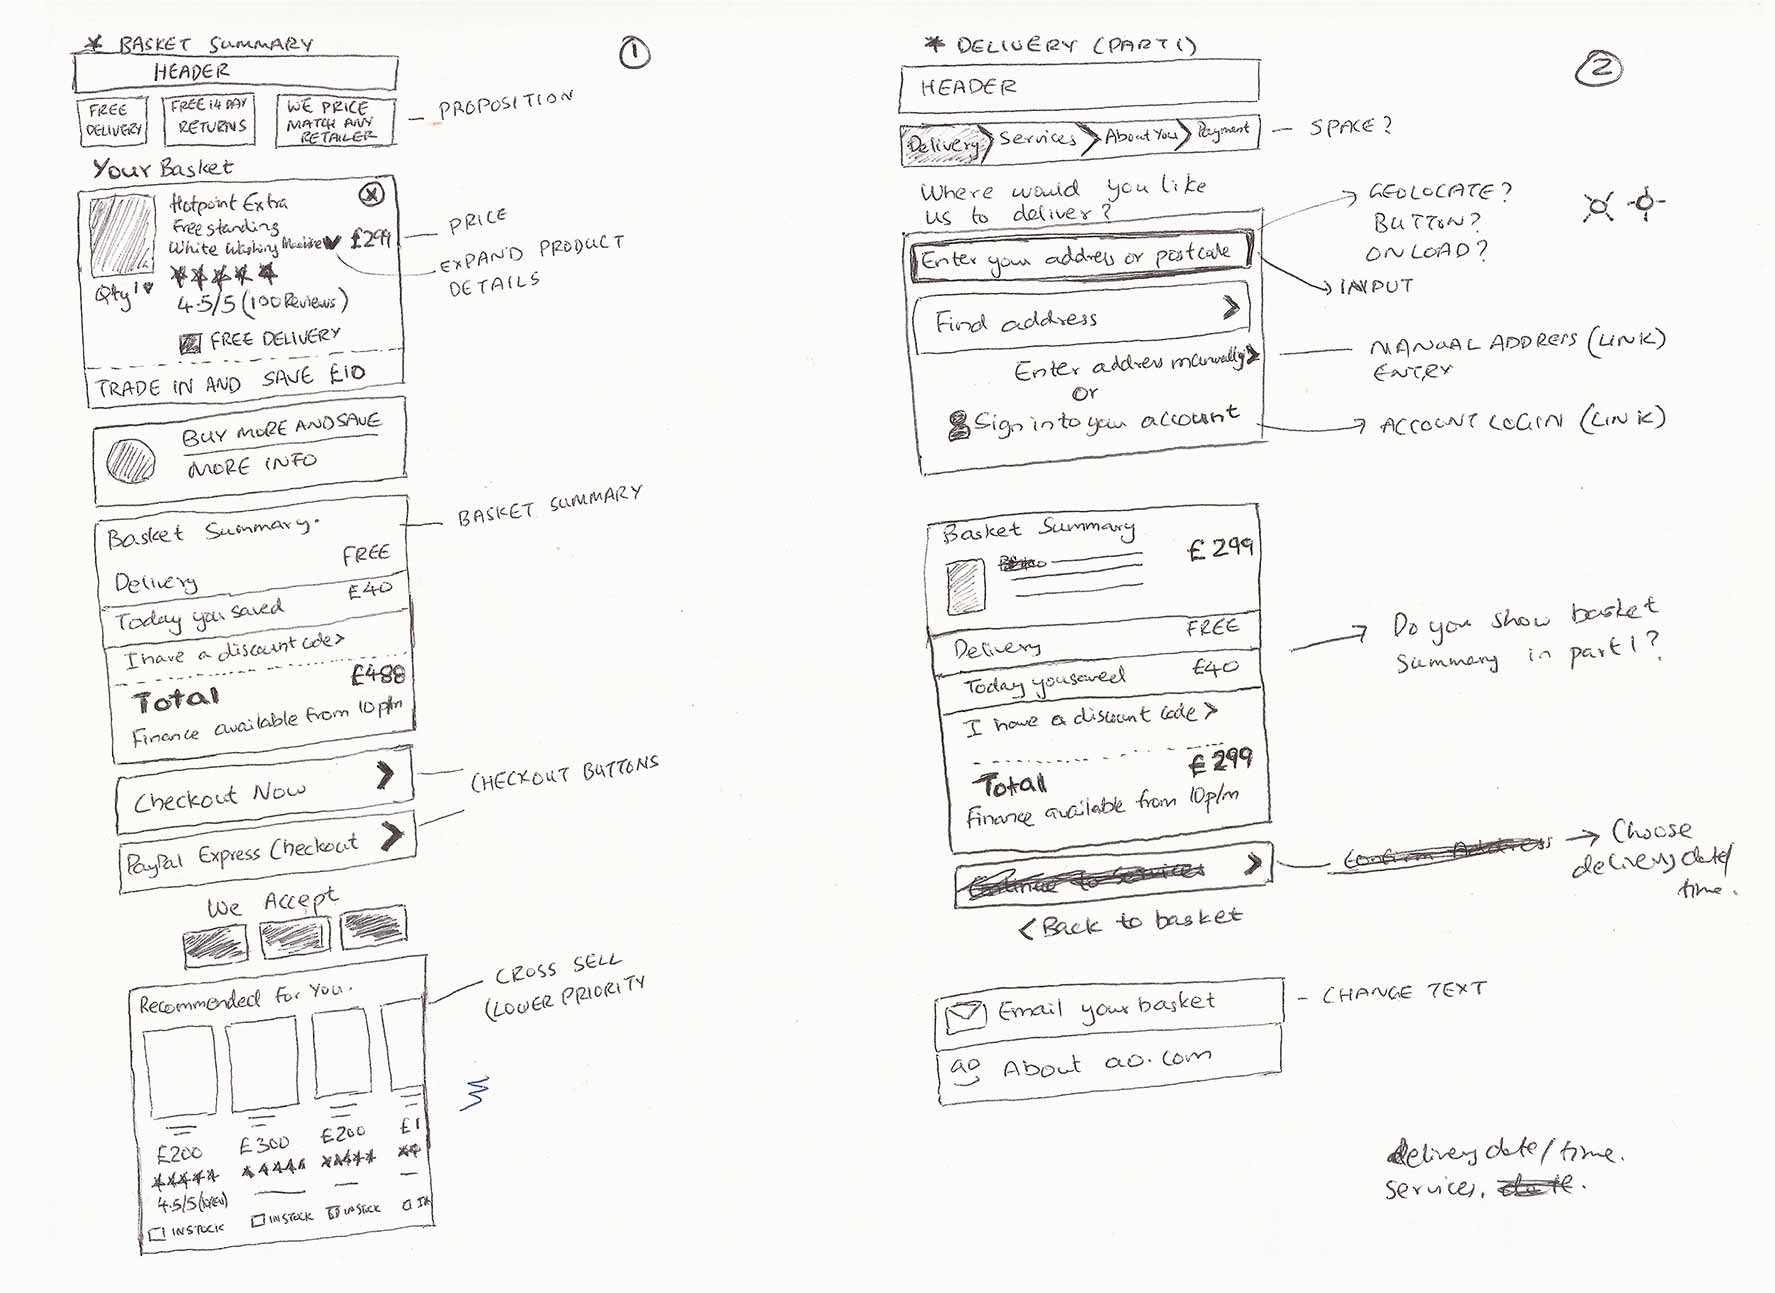 * BASKET SUMMARY
1
HEADER
FREE DELIVERY
FREE 14 DAY RETURNS
WE PRICE MATCH ANY RETAILER
PROPOSITION
Your Basket
Hotpoint Extra
Free standing
White Washing Machine
£299
X
PRICE
EXPAND PRODUCT
DETAILS
Qty 1
4.5/5 (100 Reviews)
FREE DELIVERY
TRADE IN AND SAVE £10
BUY MORE AND SAVE
MORE INFO
BASKET SUMMARY
Basket Summary.
Delivery FREE
Today you saved £40
I have a discount code >
Total £488
Finance available from 10p/m
Checkout Now
PayPal Express Checkout
CHECKOUT BUTTONS
We Accept
CROSS SELL
(LOWER PRIORITY
Recommended for You.
£200 £300 £200 £1
4.5/5
IN STOCK IN STOCK IN STOCK
* DELIVERY (PART 1)
2
HEADER
Delivery Services About You Payment
SPACE?
Where would you like
us to deliver?
GEOLOCATE?
BUTTON?
ON LOAD?
Enter your address or postcode
INPUT
Find address
Enter address manually
MANUAL ADDRESS (LINK)
ENTRY
or
Sign in to your account
ACCOUNT LOGIN (LINK)
Basket Summary
£299
Delivery FREE
Today you saved £40
I have a discount code >
Total £299
Finance available from 10p/m
Do you show basket
Summary in part 1?
Continue to Services
Confirm Address
Choose
delivery date/
time.
< Back to basket
Email your basket
CHANGE TEXT
ao About ao.com
delivery date/time.
services,